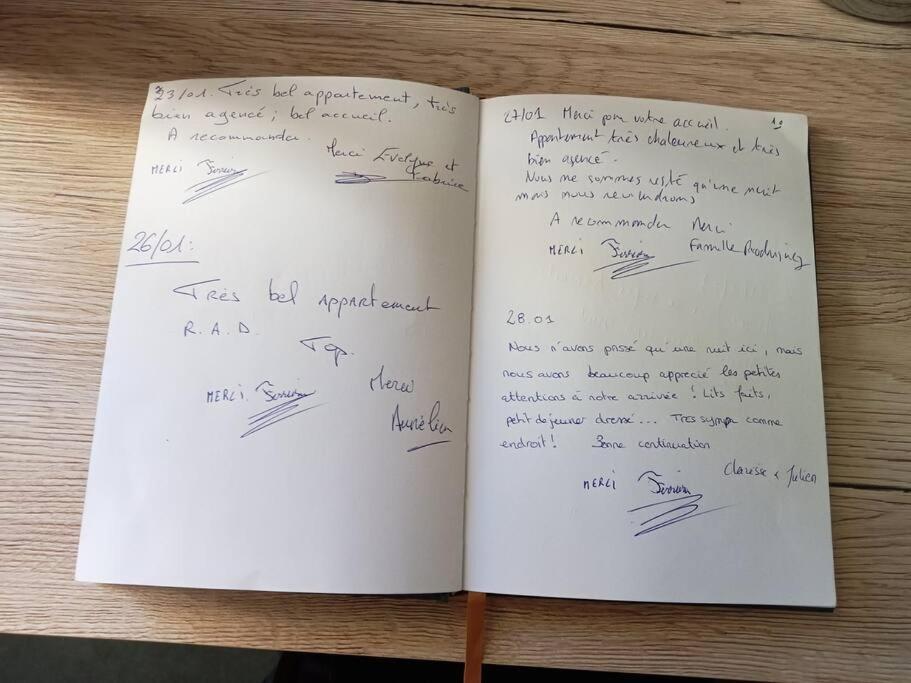 23/01. Très bel appartement, très
bien agencé ; bel accueil.
A recommander.
Merci Evelyne et
Fabrice
MERCI
26/01:
Très bel appartement
R.A.D.
Top.
Merci
Aurélien
MERCI.
10
27/01 Merci pour votre accueil.
Appartement très chaleureux et très
bien agencé.
Nous ne sommes resté qu'une nuit
mais nous reviendrons
A recommander Merci
Famille
MERCI
28.01
Nous n'avons passé qu'une nuit ici, mais
nous avons beaucoup apprécié les petites
attentions à notre arrivée ! Lits faits,
petit dejeuner dressé... Tres sympa comme
endroit ! Bonne continuation
Clarisse & Julien
MERCI